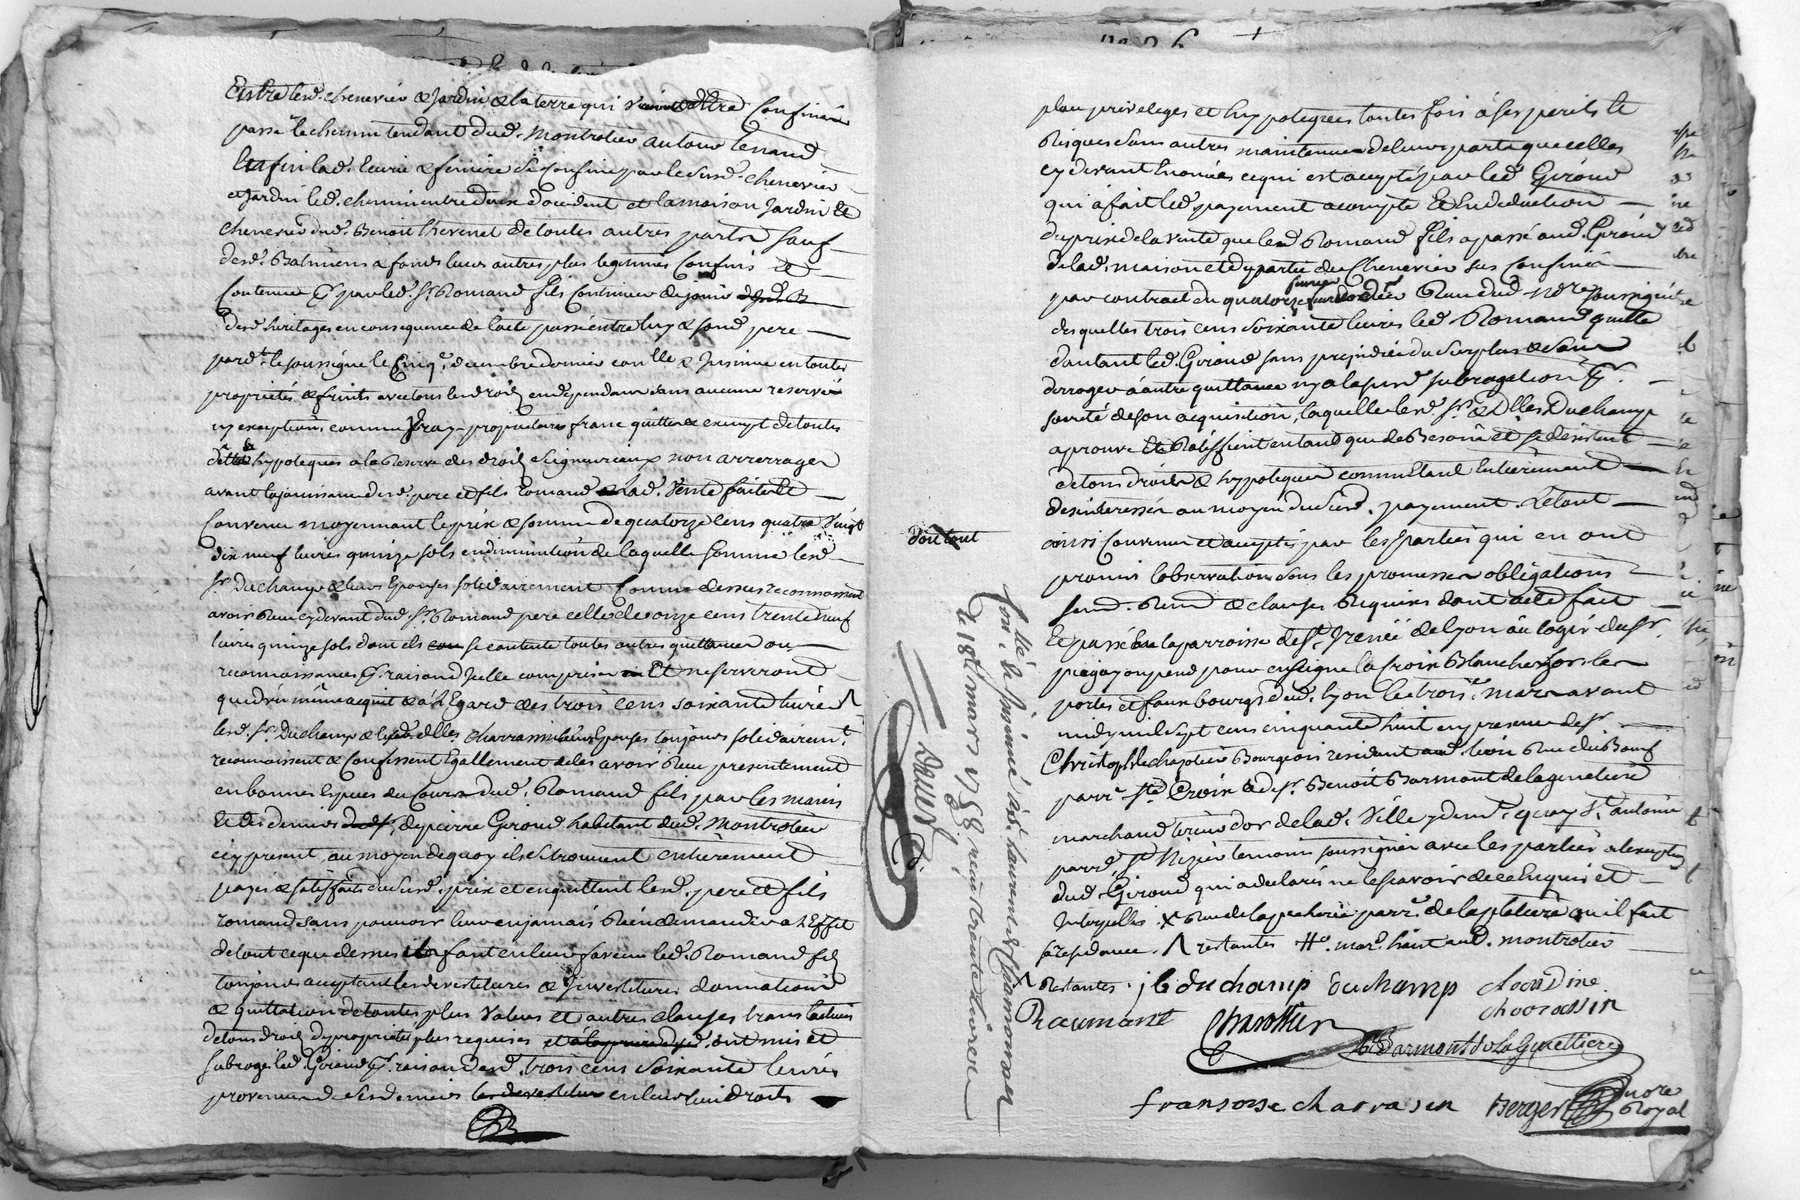 Entre led. chenevier & Jardin & la terre qui vient d'être Confinée
passé le chemin tendant dud. Montrotier autour tenand
Enfin lad. Ecurie & feniere Se Confine par le susd. chenevier
et Jardin led. chemin entre deux d'occident et la maison Jardin et
chenevier dud. Benoit thevenet de toutes autres parts sauf
desd. Batimens & fonds leurs autres plus legitimes Confins et
Contenue par led. Sr. Romand fils Continuer de jouir
desd. heritages en consequence de l'acte passé entre luy & sond. pere
pard.t le soussigné le Cinq.e decembre dernier con.llé & Insinué en toutes
proprietés & fruits avec tous les droits en dependans sans aucune reserve
ny exceptions comme vray proprietaire franc quitte & exempt de toutes
dettes hypoteques a la Reserve des droits Seigneuriaux non arrerragés
avant la jouissance desd. pere et fils romand lad. Vente faite et
Convenue moyennant le prix & somme de quatorze Cens quatre Vingt
dix neuf livres quinze sols en diminution de laquelle somme lesd.
Srs. Duchamp & leurs Epouses solidairement Comme dessus reconnoissent
avoir Reçu cy devant dud. Sr. Romand pere celle de onze cens trente neuf
livres quinze sols dont ils se contente toutes autres quittances ou
reconnoissances pr. raison d'Icelle comprises Et ne serviront
que d'un même acquit & à l'Egard des trois Cens soixante livres
lesd. Srs. Duchamp & lesd. dlles charrassin leurs Epouses toujours solidairemt.
reconnoissent & Confessent Egallement de les avoir Reçu presentement
en bonnes Especes du Cours dud. Romand fils par les mains
Et des deniers de pierre Giroud habitant dud. Montrotier
icy present, au moyen de quoy ils se trouvent entierement
payés & satisfaits du susd. prix et en quittent lesd. pere et fils
romand sans pouvoir leur en jamais Rien demander a l'Effet
de tout ce que dessus ils font en leur faveur led. Romand fils
toujours acceptant les devestitures & Investitures donnations
& quittations de toutes plus Values et autres clauses translatives
de tous droits de proprietés plus requises ont mis et
subrogé led. Giroud pr. raison desd. trois cens soixante livres
provenues de ses deniers en leurs lieu droits
plan privileges et hypoteques toutes fois à ses perils et
Risques sans autres maintenues de leurs part que celles
cy devant Enoncées ce qui est accepté par led. Giroud
qui à fait led. payement acompte Et En deduction
du prix de la vente que led. Romand fils a passé aud. Giroud
de lad. maison et dpartie du Chenevier sus Confinés
par contract du quatorze fevrier dernier Reçu dud. Nore. soussigné
desquelles trois cens Soixante livres led. Romand quitte
d'autant led. Giroud sans prejudice du surplus & sans
derroger à autre quittance ny a la susd. subrogation pr.
sureté de son acquisition, laquelle lesd. Srs. & Dlles Duchamp
aprouve Et Ratiffient en tant que de Besoin et se desistent
de tous droits & hypoteques comme Etant Entierement
desinteressés au moyen du susd. payement. Le tout
ainsi Convenu et accepté par les parties qui en ont
promis l'observation sous les promesses obligations
soumd. Renond. & clauses Requises dont acte fait
Et passé En la parroisse de St. Irenée de Lyon au logis du Sr.
pegayon pend pour enseigne la Croix Blanche hors les
portes et faux bourgs dud. Lyon le trois.e mars avant
midy mil sept cens cinquante huit en presence de Sr.
Christophle chapotier Bourgeois residant aud. Lion Rue du Boeuf
parr.e Ste. Croix & de Sr. Benoit Barmont de la genetiere
marchand tireur d'or de lad. Ville y demt. quay St. antoine
parr.e St. Nizier temoins soussignés avec les parties à l'exception
dud. Giroud qui a declaré ne le sçavoir de ce Enquis et
Interpellés X Rue de la pecherie parr.e de la platiere ou il fait
sa residence. Λ restantes # mard. haut aud. montrotier
Λ Restantes. j b duchamp duchamp claudine
charassin
Raumant Chapottier
B Barmont de La Genettiere
fransoise charasin Berger nore
Royal
doit tout
Con.llé & Insinué à St. Laurent de Chamousset
le 18e. mars 1758 reçu trente
Duvert